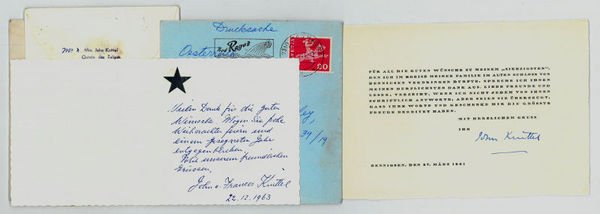 Mr & Mrs. John Knittel
Drucksache
Bad Ragaz
20
Vielen Dank für die guten
Wünsche. Mögen Sie frohe
Weihnachten feiern und
einem gesegneten Jahr
entgegenblicken.
Mit unseren freundlichen
Grüssen,
John & Frances Knittel
22.12.1963
39/19
FÜR ALL DIE GUTEN WÜNSCHE ZU MEINEM „SIEBZIGSTEN“,
DEN ICH IM KREISE MEINER FAMILIE IM ALTEN SCHLOSS VON
HENNIGSEN VERBRINGEN DURFTE, SPRECHE ICH IHNEN
MEINEN HERZLICHSTEN DANK AUS. LIEBE FREUNDE UND
LESER, VERZEIHT, WENN ICH NICHT JEDEM VON IHNEN
SCHRIFTLICH ANTWORTE, ABER SEIEN SIE ÜBERZEUGT
DASS IHRE WORTE UND GESCHENKE MIR DIE GRÖSSTE
FREUDE BEREITET HABEN.
MIT HERZLICHEM GRUSS
IHR
John Knittel
HENNIGSEN, DEN 27. MÄRZ 1961